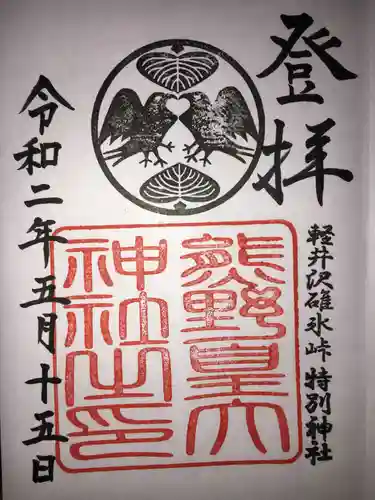 登拝
軽井沢碓氷峠 特別神社
熊野皇大
神社之印
令和二年五月十五日